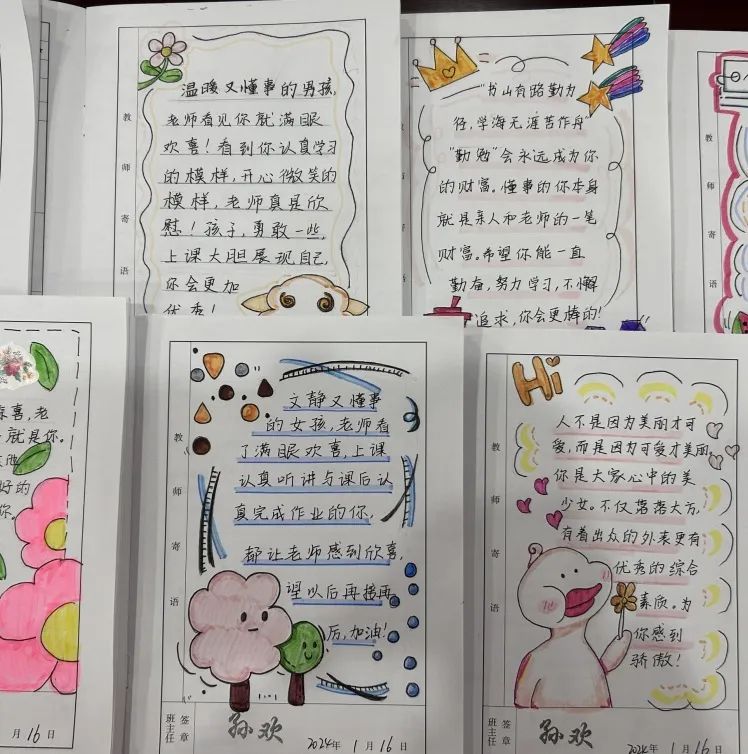 教师寄语
温暖又懂事的男孩,
老师看见你就满眼
欢喜!看到你认真学习
的模样,开心微笑的
模样,老师真是欣
慰!孩子,勇敢一些,
上课大胆展现自己,
你会更加
优秀!
教师寄语
"书山有路勤为
径,学海无涯苦作舟"
"勤勉"会永远成为你
的财富。懂事的你本身
就是亲人和老师的一笔
财富。希望你能一直
勤奋,努力学习,不懈
追求,你会更棒的!
教师寄语
喜,老
就是你。
好的
你。
月16日
教师寄语
文静又懂事
的女孩,老师看
了满眼欢喜,上课
认真听讲与课后认
真完成作业的你,
都让老师感到欣喜,
望以后再接再
后,加油!
班主任签章
孙欢
2024年1月16日
教师寄语
Hi
人不是因为美丽才可
爱,而是因为可爱才美丽。
你是大家心中的美
少女。不仅落落大方,
有着出众的外表更有
优秀的综合
素质。为
你感到
骄傲!
班主任签章
孙欢
2024年1月16日